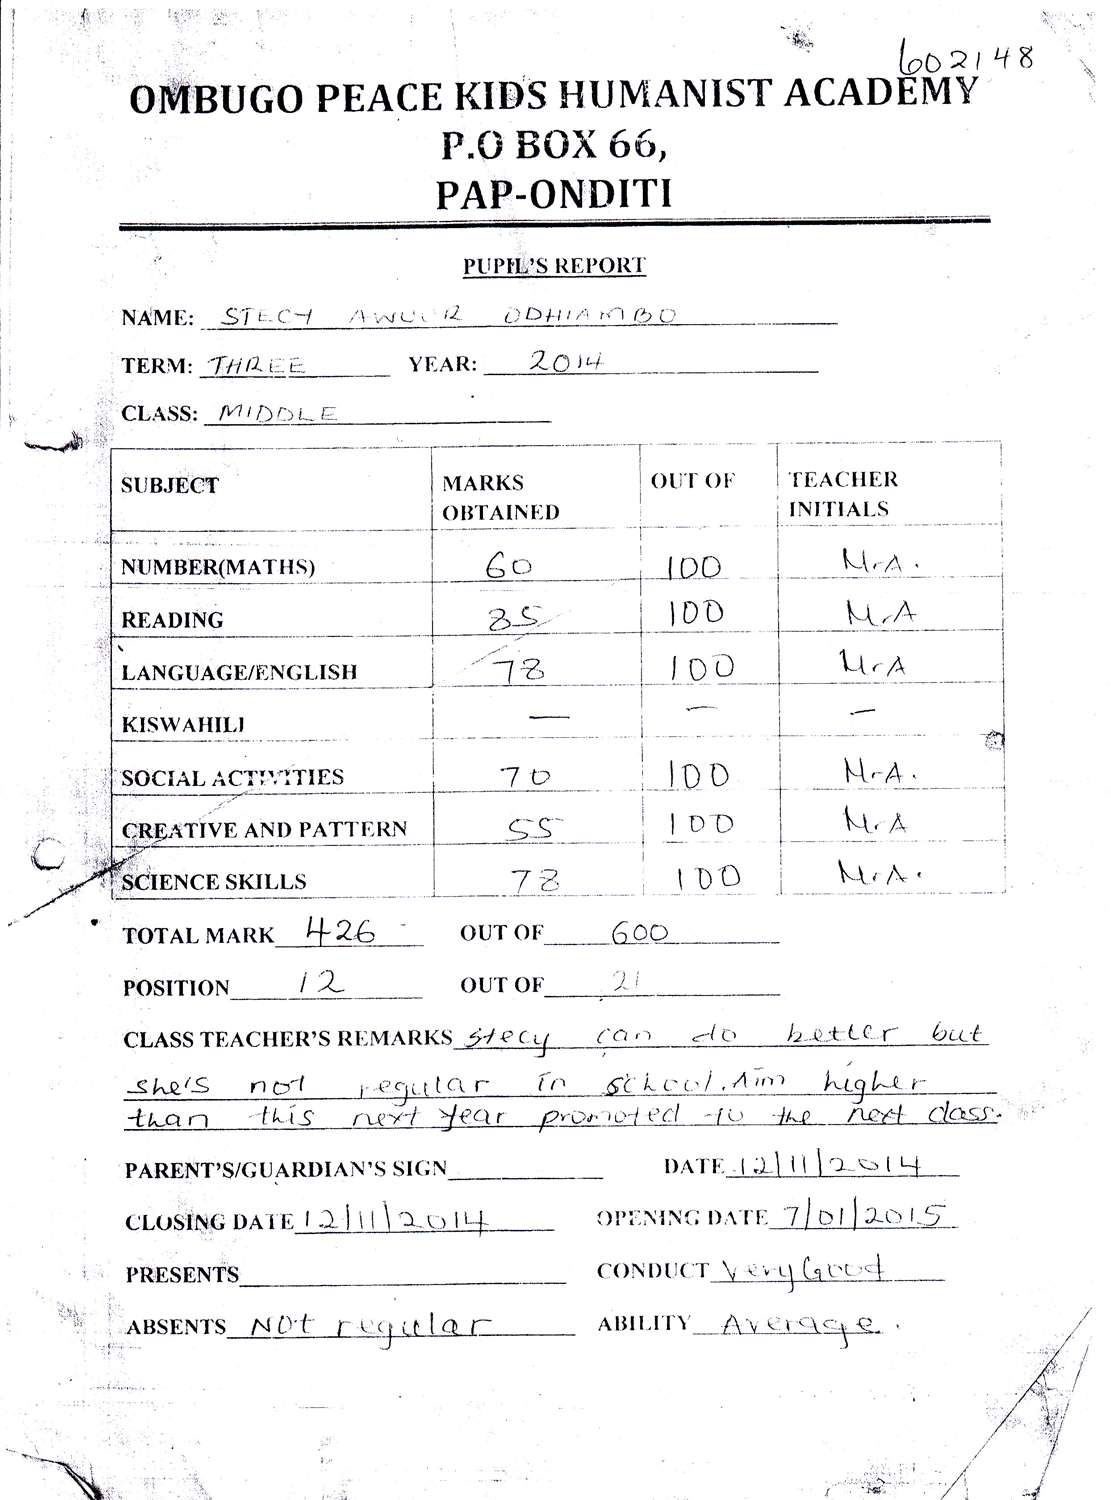 602148
OMBUGO PEACE KIDS HUMANIST ACADEMY
P.O BOX 66,
PAP-ONDITI
PUPIL'S REPORT
NAME: STECY AWUOR ODHIAMBO
TERM: THREE YEAR: 2014
CLASS: MIDDLE
SUBJECT MARKS OBTAINED OUT OF TEACHER INITIALS
NUMBER(MATHS) 60 100 M.A.
READING 85 100 M.A
LANGUAGE/ENGLISH 78 100 M.A
KISWAHILI — — —
SOCIAL ACTIVITIES 70 100 M.A.
CREATIVE AND PATTERN 55 100 M.A
SCIENCE SKILLS 78 100 M.A.
TOTAL MARK 426 OUT OF 600
POSITION 12 OUT OF 21
CLASS TEACHER'S REMARKS Stecy can do better but
she's not regular in school. Aim higher
than this next year promoted to the next class.
PARENT'S/GUARDIAN'S SIGN DATE 12/11/2014
CLOSING DATE 12/11/2014 OPENING DATE 7/01/2015
PRESENTS CONDUCT Very Good
ABSENTS Not regular ABILITY Average.